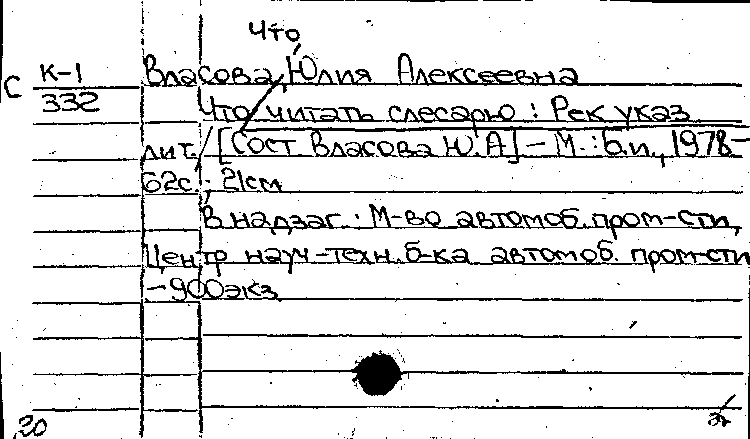 Что
С К-1 Власова, Юлия Алексеевна
332 Что читать слесарю : Рек указ
лит. / [Сост Власова Ю.А] – М. : б.и., 1978 –
62с. ; 21см
В надзаг. : М-во автомоб. пром-сти,
Центр науч-техн. б-ка автомоб. пром-сти
– 900экз
20